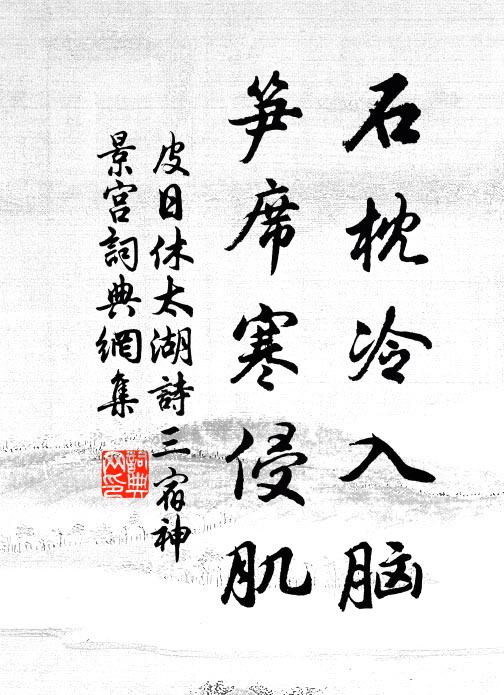 石枕冷入脑
笋席寒侵肌
皮日休太湖詩三宿神
景宫詞典網集
詞典網印